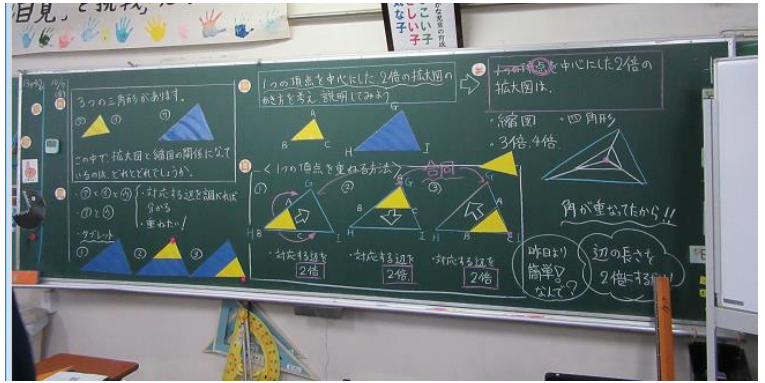 目見」と挑戦」た
３つの三角形があります。
㋐ ㋑ ㋒
この中で、拡大図と縮図の関係になって
いるのは、どれとどれでしょうか。
・㋐と㋒
・㋑と㋒
・対応する辺を調べれば
分かる
・重ねたい！
・タブレット
① ② ③
１つの頂点を中心にした２倍の拡大図の
かき方を考え、説明してみよう
A
B C
G
H I
＜１つの頂点を重ねる方法＞
合同
① ② ③
G
A
H B C I
G
A
B C
H I
G
A
H B C I
・対応する辺を
２倍
・対応する辺を
２倍
・対応する辺を
２倍
点を中心にした２倍の
拡大図は、
・縮図 ・四角形
・３倍、４倍
角が重なってたから！！
昨日より
簡単！
なんで？
辺の長さを
２倍にする